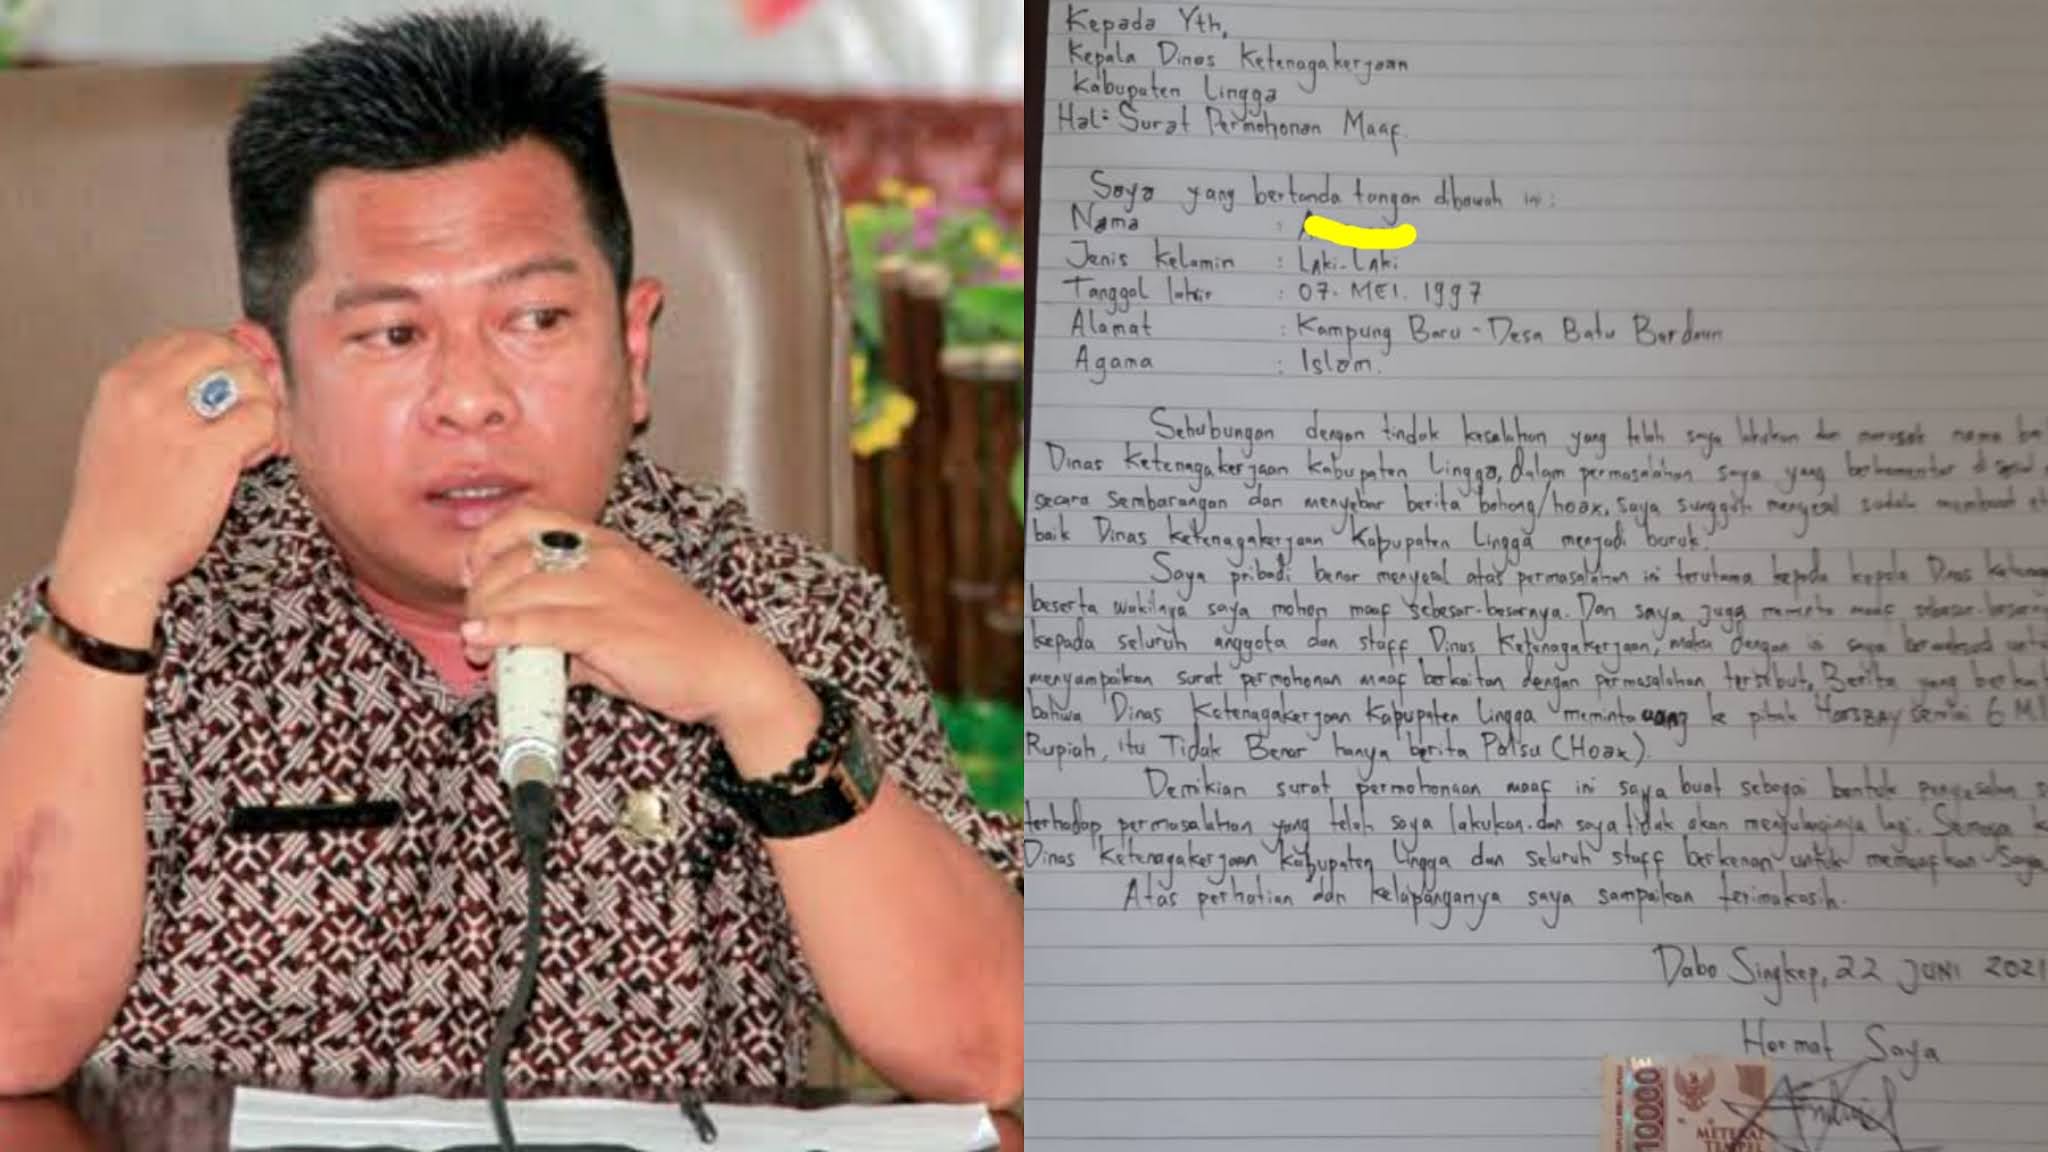 Kepada Yth,
Kepala Dinas Ketenagakerjaan
Kabupaten Lingga
Hal: Surat Permohonan Maaf.
Saya yang bertanda tangan dibawah ini:
Nama : A
Jenis Kelamin : Laki-Laki
Tanggal lahir : 07. MEI. 1997
Alamat : Kampung Baru - Desa Batu Berdaun
Agama : Islam.
Sehubungan dengan tindak kesalahan yang telah saya lakukan dan merusak nama
Dinas Ketenagakerjaan Kabupaten Lingga, dalam permasalahan saya yang berkomentar di
secara sembarangan dan menyebar berita bohong/hoax, saya sungguh menyesal sudah membuat
baik Dinas Ketenagakerjaan Kabupaten Lingga menjadi buruk.
Saya pribadi benar menyesal atas permasalahan ini terutama kepada kepala Dinas
beserta wakilnya saya mohon maaf sebesar-besarnya. Dan saya juga meminta maaf
kepada seluruh anggota dan staff Dinas Ketenagakerjaan, maka dengan ini saya bermaksud
menyampaikan surat permohonan maaf berkaitan dengan permasalahan tersebut, Berita yang
bahwa Dinas Ketenagakerjaan Kabupaten Lingga meminta uang ke pihak 6
Rupiah, itu Tidak Benar hanya berita Palsu (Hoax).
Demikian surat permohonaan maaf ini saya buat sebagai bentuk penyesalan
terhadap permasalahan yang telah saya lakukan dan saya tidak akan mengulanginya lagi. Semoga
Dinas Ketenagakerjaan Kabupaten Lingga dan seluruh staff berkenan untuk memaafkan Saya
Atas perhatian dan kelapanganya saya sampaikan terimakasih.
Dabo Singkep, 22 JUNI 2021
Hormat Saya
10000
METERAI
TEMPEL